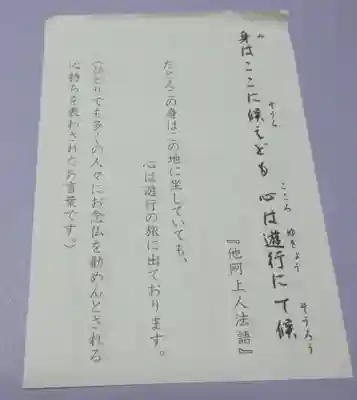 身はここに候えども 心は遊行にて候
み そうら こころ ゆぎょう そうろう
『他阿上人法語』
たとえこの身はこの地に坐していても、
心は遊行の旅に出ております。
(ひとりでも多くの人々にお念仏を勧めんとされる
心持ちを表わされたお言葉です。)